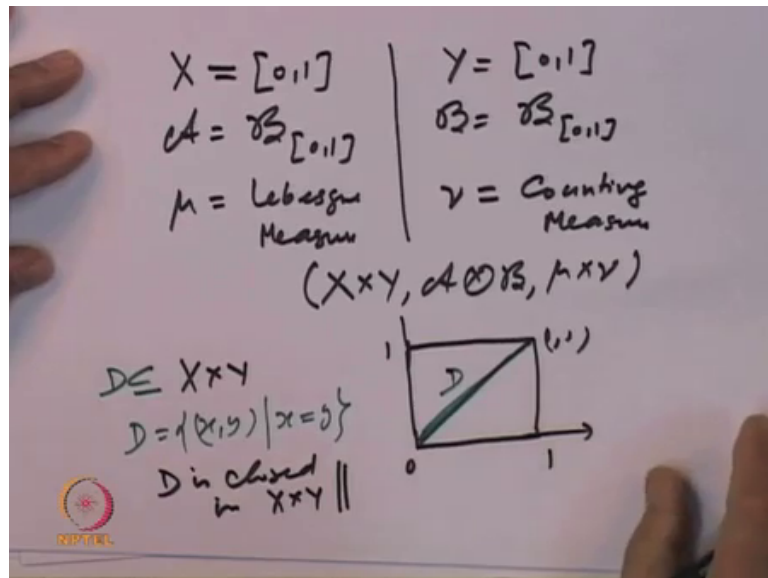 X = [0,1]
𝒜 = ℬ[0,1]
μ = Lebesgue
Measure
Y = [0,1]
ℬ = ℬ[0,1]
ν = Counting
Measure
(X×Y, 𝒜⊗ℬ, μ×ν)
D ⊆ X×Y
D = {(x,y) | x=y}
D is closed
in X×Y ||
1
(1,1)
D
0
1
NPTEL